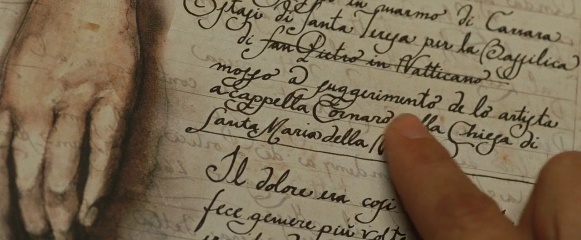 in marmo di Carrara
Estasi di Santa Teresa per la Bassilica
di San Pietro in Vatticano
mosso a suggerimento de lo artista
a cappella Cornaro alla Chiesa di
Santa Maria della
Il dolore era così
fece gemere più volte